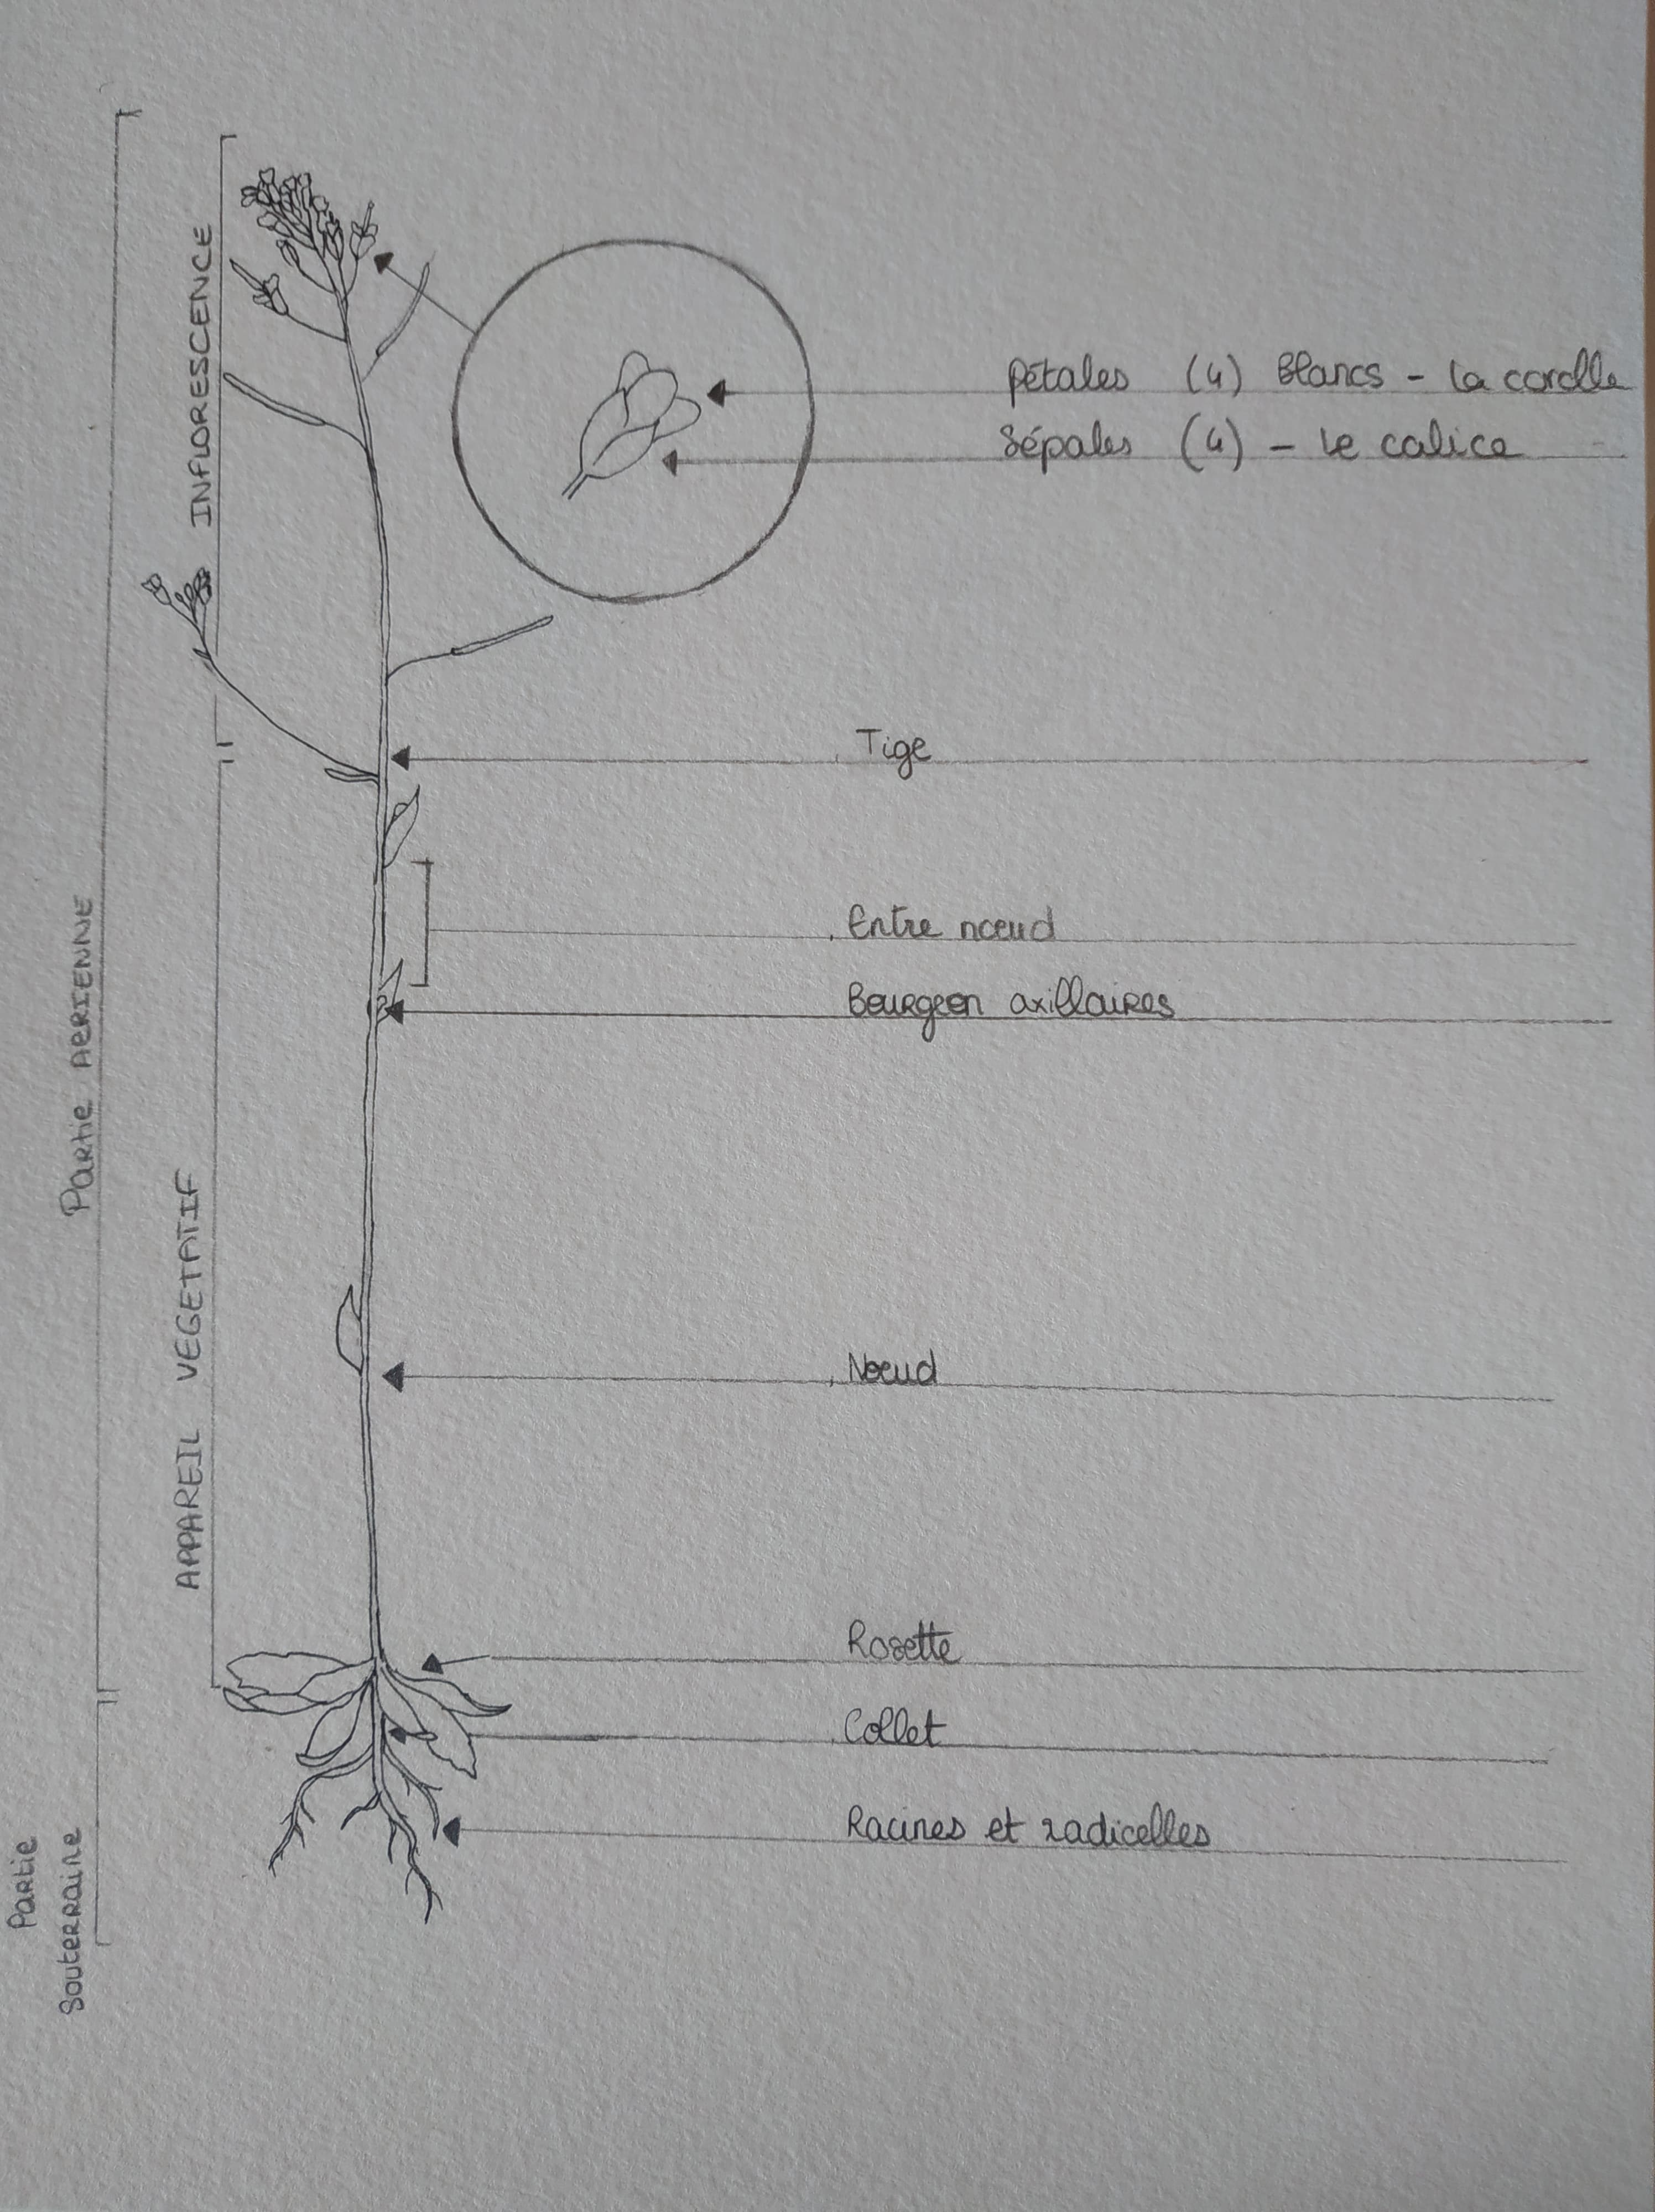 Partie AERIENNE
INFLORESCENCE
Pétales (4) Blancs - la corolle
Sépales (4) - le calice
Tige
Entre nœud
Bourgeon axillaires
APPAREIL VEGETATIF
Nœud
Rosette
Collet
Racines et radicelles
Partie
Souterraine